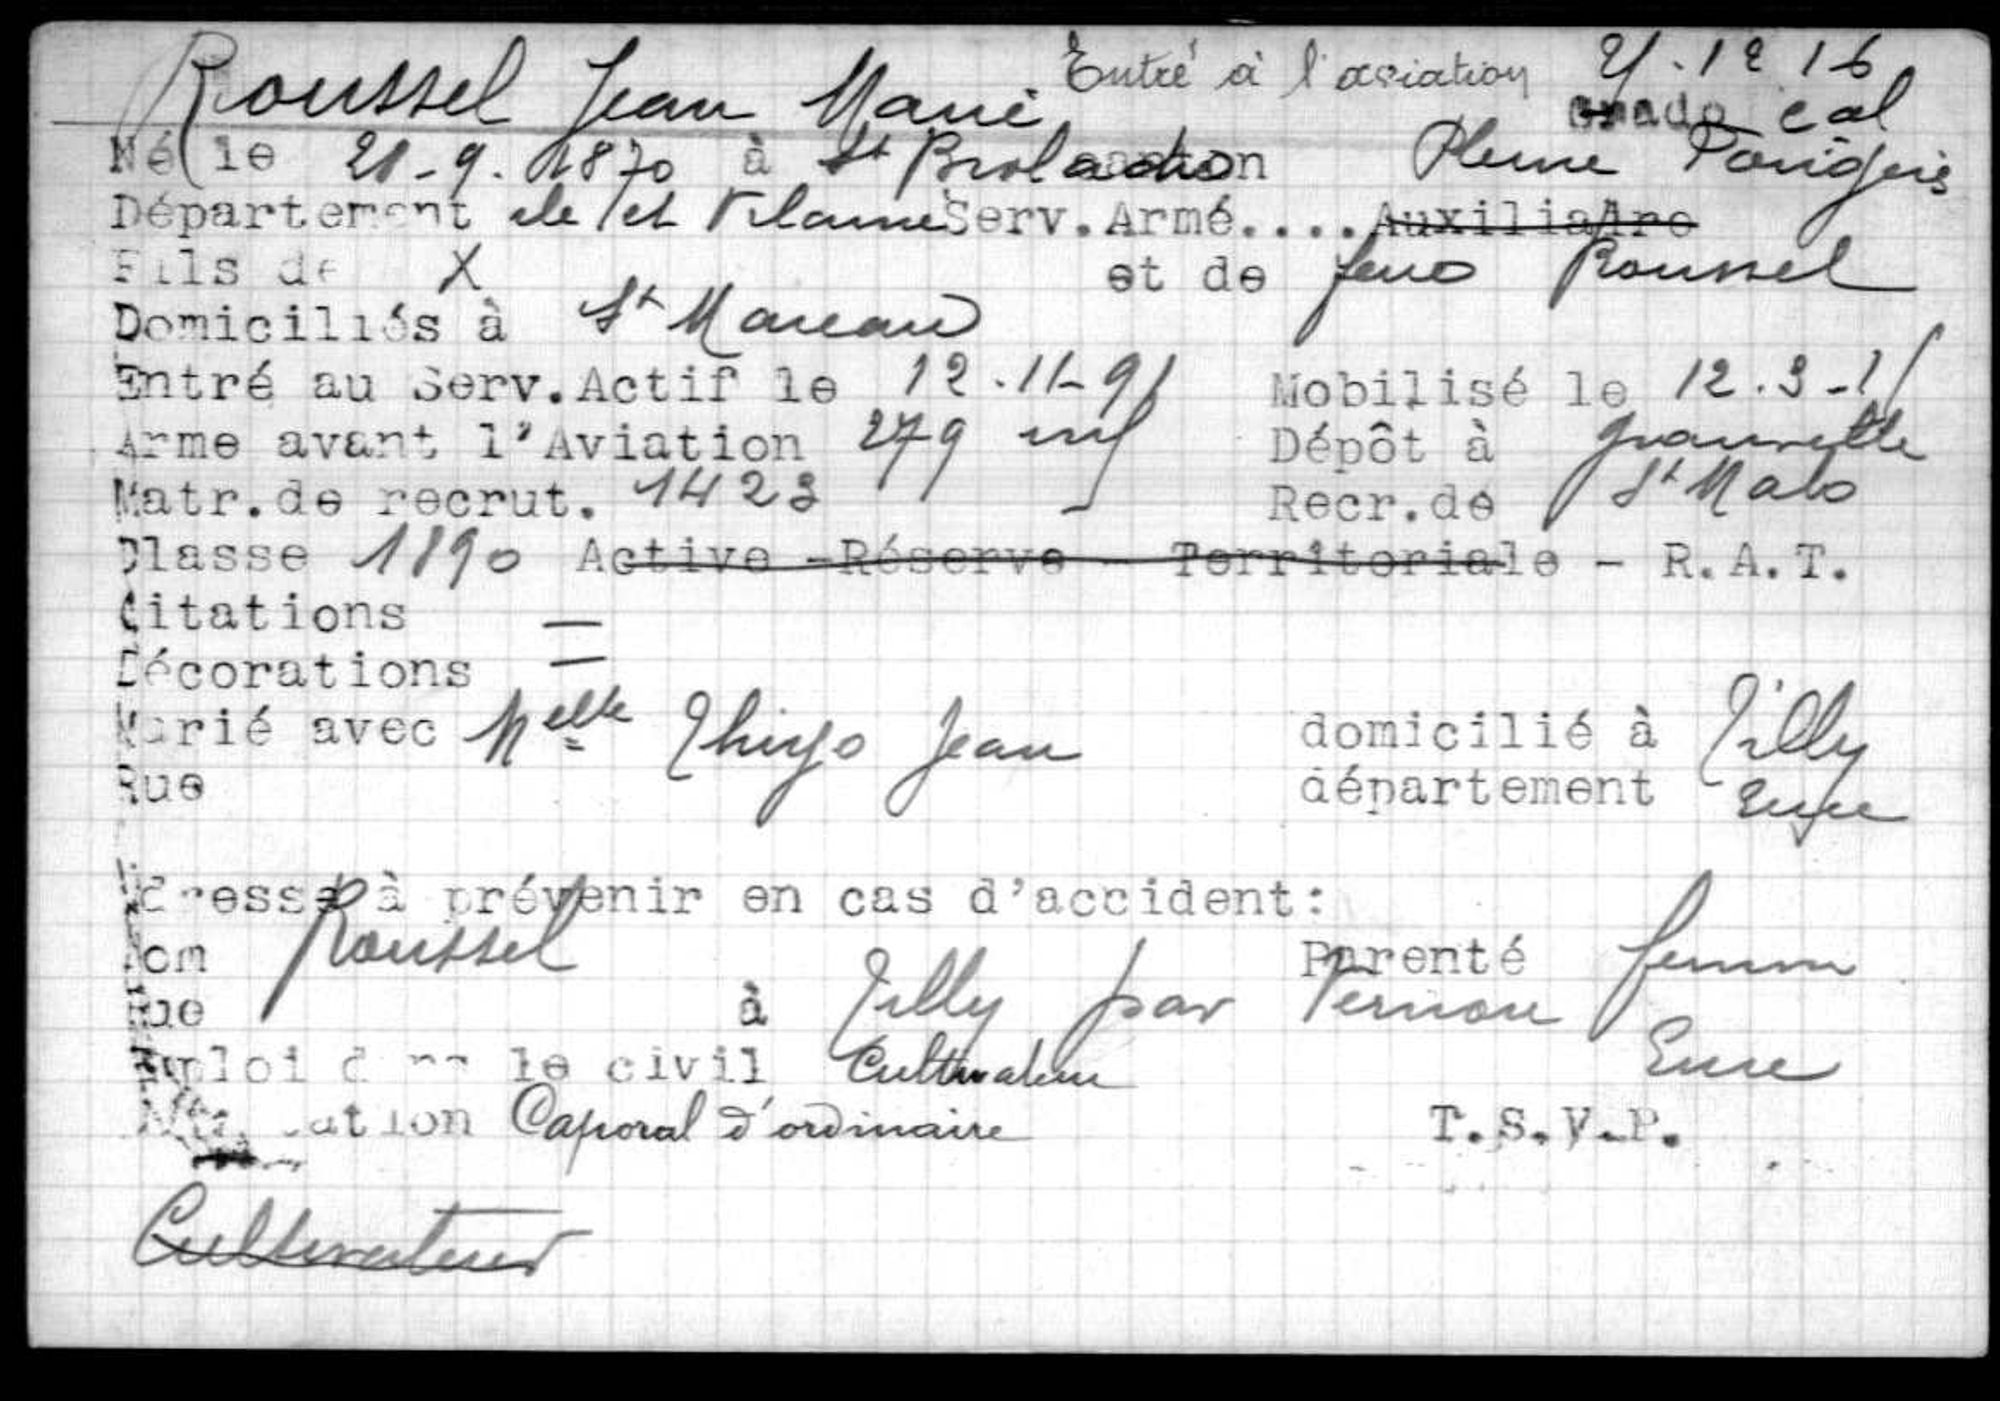 Roussel Jean Marie Entré à l'aviation 21.12 16
Grade Cal
Né le 21-9.1870 à St Broladre canton Pleine Fougeres
Département Ile et Vilaine Serv.Armé....Auxiliaire
Fils de X et de feue Roussel
Domiciliés à St Marcan
Entré au Serv.Actif le 12.11-91 Mobilisé le 12.3-1
Arme avant l'Aviation 279 inf Dépôt à Granville
Matr.de recrut. 1423 Recr.de St Malo
Classe 1890 Active - Réserve - Territoriale - R.A.T.
Citations —
Décorations —
Marié avec Melle Jean domicilié à Tilly
Rue département Eure
Adresse à prévenir en cas d'accident:
Nom Roussel Parenté femme
Rue à Tilly par Vernon
Eure
Emploi dans le civil Cultivateur
Caporal d'ordinaire T.S.V.P.
Cultivateur